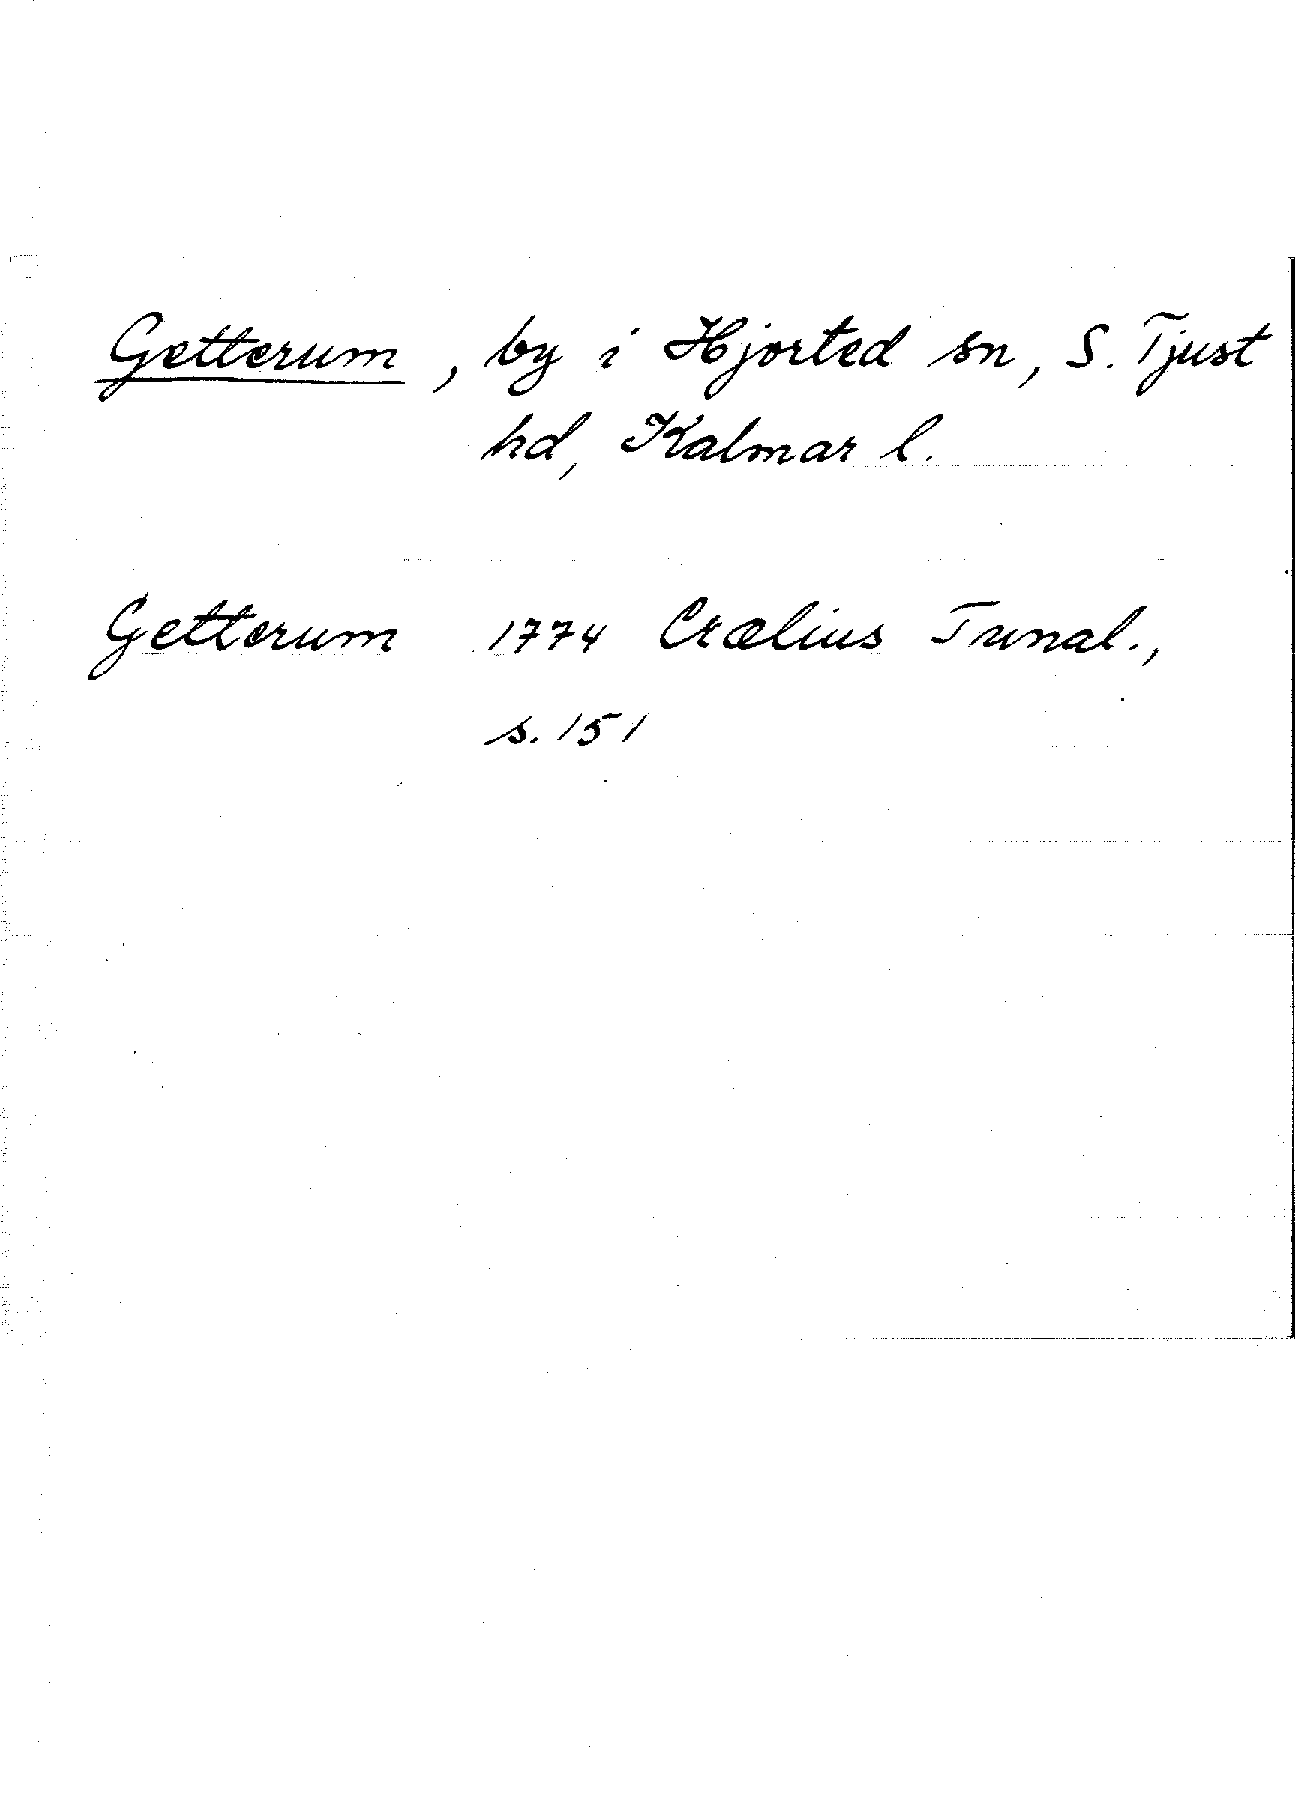 Getterum, by i Hjorted sn, S. Tjust
hd, Kalmar l.
Getterum 1774 Crælius Tunal.,
s. 151